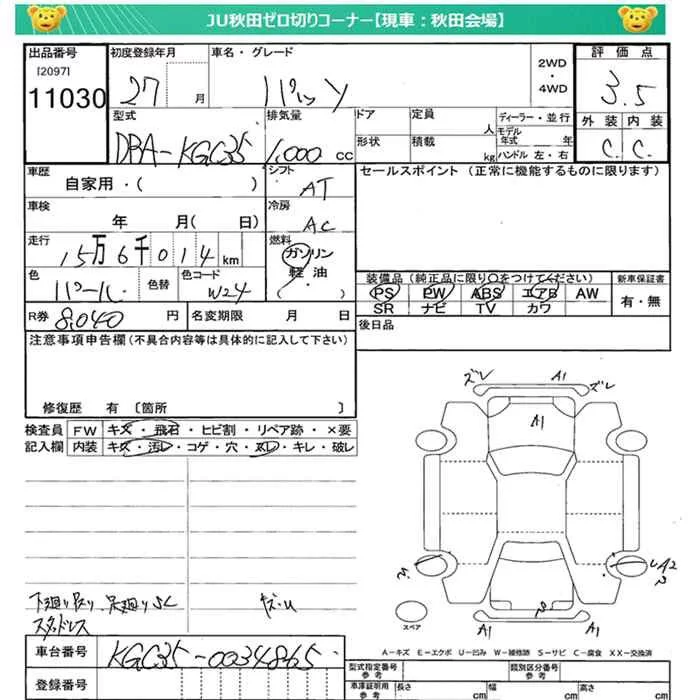 JU秋田ゼロ切りコーナー【現車：秋田会場】
出品番号 初度登録年月 車名・グレード 2WD・4WD 評価点
[2097]
11030 27 月 パッソ 3.5
型式 排気量 ドア 定員 人 ディーラー・並行 外装 内装
DBA-KGC35 1,000 cc 形状 積載 kg モデル年式 年 ハンドル 左・右 C. C.
車歴 シフト セールスポイント (正常に機能するものに限ります)
自家用・( ) AT
車検 冷房
年 月( 日) AC
走行 燃料
15万6千014 km ガソリン
色 色替 色コード 軽油
パール W24 ( ・ )
装備品 (純正品に限り○をつけてください) 新車保証書
PS PW ABS エアB AW 有・無
SR ナビ TV カワ
R券 8,040 円 名変期限 月 日 後日品
注意事項申告欄 (不具合内容等は具体的に記入して下さい)
修復歴 有 〔箇所 〕
検査員 FW キズ・飛石・ヒビ割・リペア跡・×要
記入欄 内装 キズ・汚レ・コゲ・穴・スレ・キレ・破レ
ズレ A1 ズレ
A1
A2
A1 A1
スペア
スタッドレス
A-キズ E-エクボ U-凹み W-補修跡 S-サビ C-腐食 XX-交換済
車台番号 KGC35-0034865
登録番号
型式指定番号 参考 類別区分番号 参考
車庫証明用 参考 長さ cm 幅 cm 高さ cm